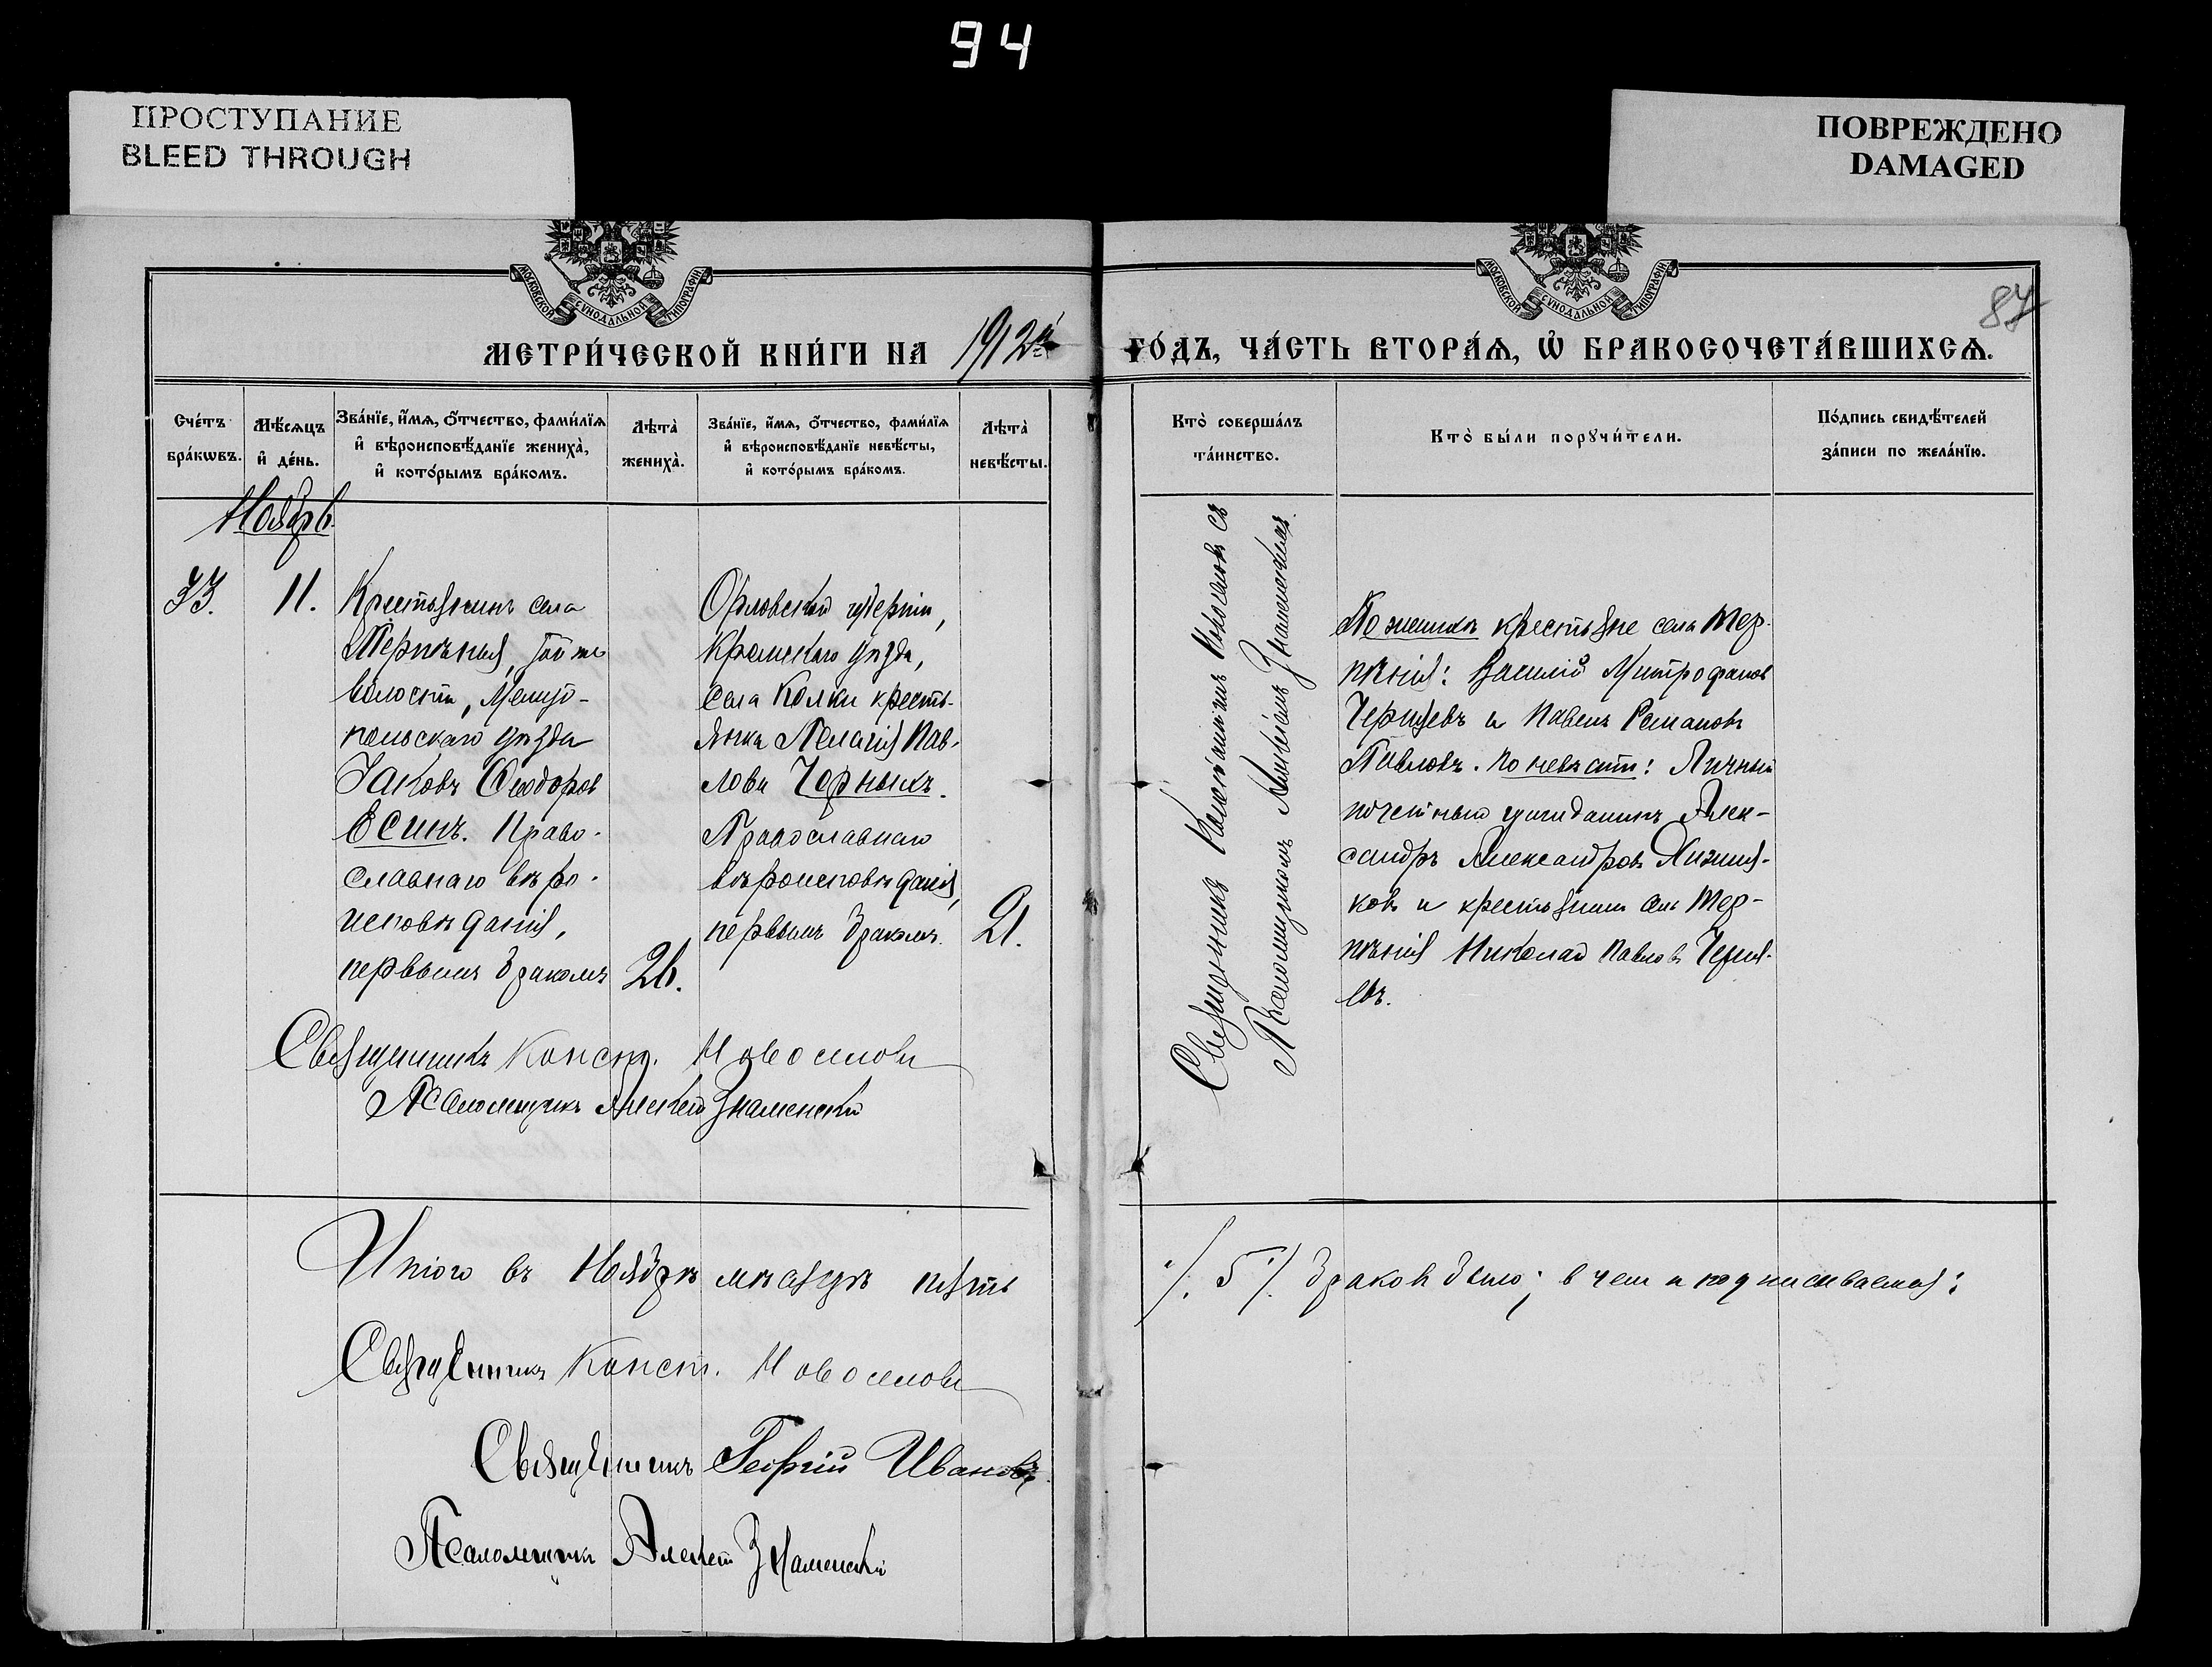 94
ПРОСТУПАНИЕ
BLEED THROUGH
ПОВРЕЖДЕНО
DAMAGED
МОСКОВСКОЙ СѴНОДАЛЬНОЙ ТИПОГРАФІИ
МОСКОВСКОЙ СѴНОДАЛЬНОЙ ТИПОГРАФІИ
87
МЕТРИ́ЧЕСКОЙ КНИ́ГИ НА 1912й
ГО́ДЪ, ЧА́СТЬ ВТОРА́Ѧ, Ѡ҆ БРАКОСОЧЕТА́ВШИХСѦ.
Сче́тъ бра́кѡвъ.
Мѣ́сѧцъ и҆ де́нь.
Зва́нїе, и҆́мѧ, ѻ҆́тчество, фами́лїѧ и҆ вѣроисповѣ́данїе жениха̀, и҆ кото́рымъ бра́комъ.
Лѣта̀ жениха̀.
Зва́нїе, и҆́мѧ, ѻ҆́тчество, фами́лїѧ и҆ вѣроисповѣ́данїе невѣ́сты, и҆ кото́рымъ бра́комъ.
Лѣта̀ невѣ́сты.
Кто̀ соверша́лъ та́инство.
Кто̀ бы́ли порꙋчи́тели.
По́дпись свидѣ́телей за́писи по жела́нїю.
Ноябрь
33.
11.
Крестьянинъ села
Терпѣнія, той же
волости, Мелито-
польскаго уѣзда
Іаковъ Ѳеодоровъ
Есинъ. Право-
славнаго вѣро-
исповѣданія,
первымъ бракомъ
26.
Орловской губерніи,
Кромскаго уѣзда,
села Колки кресть-
янка Пелагія Пав-
лова Черныхъ.
Православнаго
вѣроисповѣданія,
первымъ бракомъ.
21.
Священникъ Константинъ Новоселовъ съ
Псаломщикомъ Алексѣемъ Знаменскимъ.
По женихѣ крестьяне села Тер-
пѣнія: Василій Митрофановъ
и Павелъ Романовъ
Павловъ. По невѣстѣ: Личный
почетный гражданинъ Алек-
сандръ Александровъ
ковъ и крестьянинъ села Тер-
пѣнія Николай Павловъ
евъ.
Священникъ Конст. Новоселовъ
Псаломщикъ Алексѣй Знаменскій
Итого въ Ноябрѣ мѣсяцѣ пять
/. 5 /. браковъ было; в чем и подписываемся:
Священникъ Конст. Новоселовъ
Священникъ Георгій Ивановъ.
Псаломщикъ Алексѣй Знаменскій